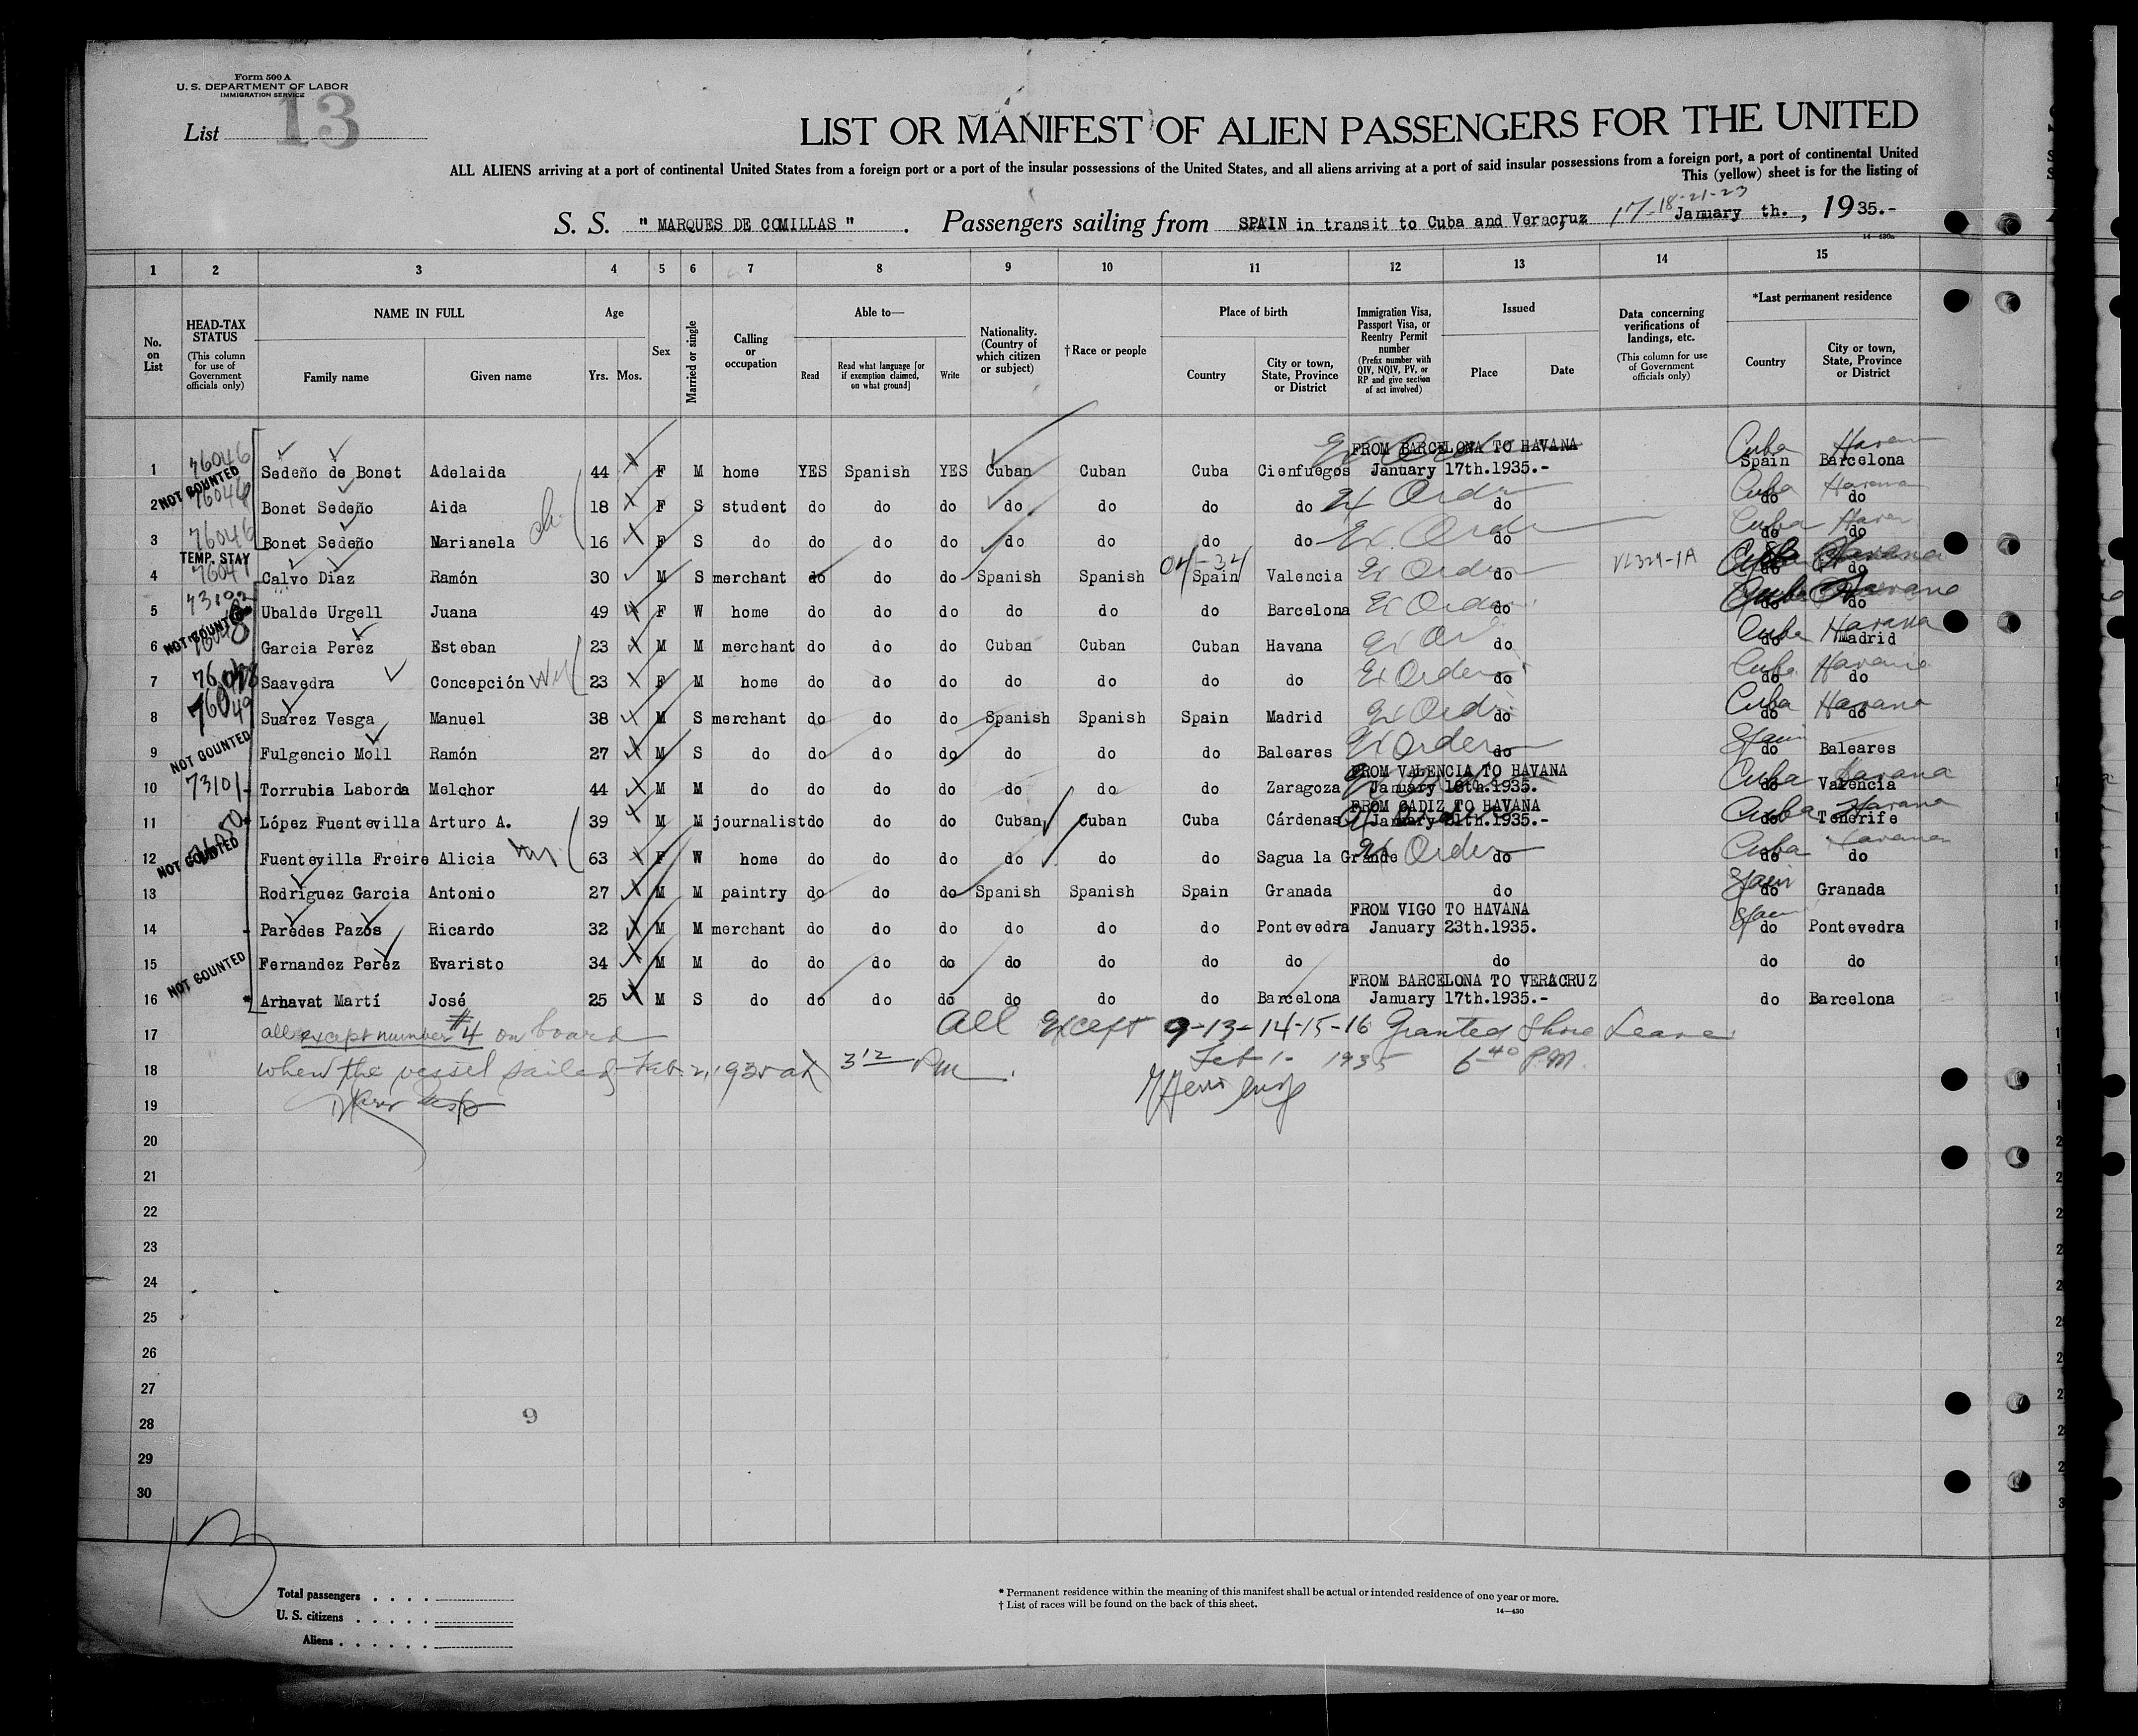 Form 500 A
U. S. DEPARTMENT OF LABOR
IMMIGRATION SERVICE
List 13
LIST OR MANIFEST OF ALIEN PASSENGERS FOR THE UNITED
ALL ALIENS arriving at a port of continental United States from a foreign port or a port of the insular possessions of the United States, and all aliens arriving at a port of said insular possessions from a foreign port, a port of continental United
This (yellow) sheet is for the listing of
S. S. " MARQUES DE COMILLAS " . Passengers sailing from SPAIN in transit to Cuba and Veracruz, 17-18-21-23 January th. , 1935.-
1 2 3 4 5 6 7 8 9 10 11 12 13 14 15
No. on List
HEAD-TAX STATUS (This column for use of Government officials only)
NAME IN FULL Family name Given name
Age Yrs. Mos.
Sex
Married or single
Calling or occupation
Able to— Read Read what language [or if exemption claimed, on what ground] Write
Nationality. (Country of which citizen or subject)
†Race or people
Place of birth Country City or town, State, Province or District
Immigration Visa, Passport Visa, or Reentry Permit number (Prefix number with QIV, NQIV, PV, or RP and give section of act involved)
Issued Place Date
Data concerning verifications of landings, etc. (This column for use of Government officials only)
*Last permanent residence Country City or town, State, Province or District
FROM BARCELONA TO HAVANA
1 76046 NOT COUNTED Sedeño de Bonet Adelaida 44 F M home YES Spanish YES Cuban Cuban Cuba Cienfuegos January 17th.1935.- Cuba Spain Barcelona
2 76046 Bonet Sedeño Aida 18 F S student do do do do do do do Ex Order do Cuba Havana do do
3 76046 Bonet Sedeño Marianela 16 F S do do do do do do do do Ex Order do Cuba do do
4 TEMP. STAY Calvo Diaz Ramón 30 M S merchant do do do Spanish Spanish Spain Valencia Ex Order do VL329-1A Cuba Havana do do
5 Ubalde Urgell Juana 49 F W home do do do do do do Barcelona Ex Order do Cuba Havana do do
6 NOT COUNTED Garcia Perez Esteban 23 M M merchant do do do Cuban Cuban Cuban Havana do Cuba Havana do Madrid
7 Saavedra Concepción 23 F M home do do do do do do do Ex Order do Cuba Havana do do
8 76049 Suárez Vesga Manuel 38 M S merchant do do do Spanish Spanish Spain Madrid Ex Order do Cuba Havana do do
9 NOT COUNTED Fulgencio Moll Ramón 27 M S do do do do do do do Baleares Ex Order do Spain do Baleares
FROM VALENCIA TO HAVANA
10 73101 Torrubia Laborda Melchor 44 M M do do do do do do do Zaragoza January 18th.1935. Cuba Havana do Valencia
FROM CADIZ TO HAVANA
11 López Fuentevilla Arturo A. 39 M M journalist do do do Cuban Cuban Cuba Cárdenas January 21th.1935.- Cuba Havana do Tenerife
12 NOT COUNTED Fuentevilla Freire Alicia 63 F W home do do do do do do Sagua la Grande Ex Order do Cuba Havana do do
13 Rodriguez Garcia Antonio 27 M M paintry do do do Spanish Spanish Spain Granada do Spain do Granada
FROM VIGO TO HAVANA
14 Paredes Pazos Ricardo 32 M M merchant do do do do do do Pontevedra January 23th.1935. Spain do Pontevedra
15 NOT COUNTED Fernandez Perez Evaristo 34 M M do do do do do do do do do do do
FROM BARCELONA TO VERACRUZ
16 * Arnavat Martí José 25 M S do do do do do do do Barcelona January 17th.1935.- do Barcelona
17 all except number #4 on board All Except 9-13-14-15-16 Granted Shore Leave
18 when the vessel sailed Feb. 2, 1935 at 3 12 Pm. Feb 1- 1935 6 40 P.M.
19
20
21
22
23
24
25
26
27
28 9
29
30
13
Total passengers . . . .
U. S. citizens . . . . .
Aliens . . . . . .
* Permanent residence within the meaning of this manifest shall be actual or intended residence of one year or more.
† List of races will be found on the back of this sheet.
14—430